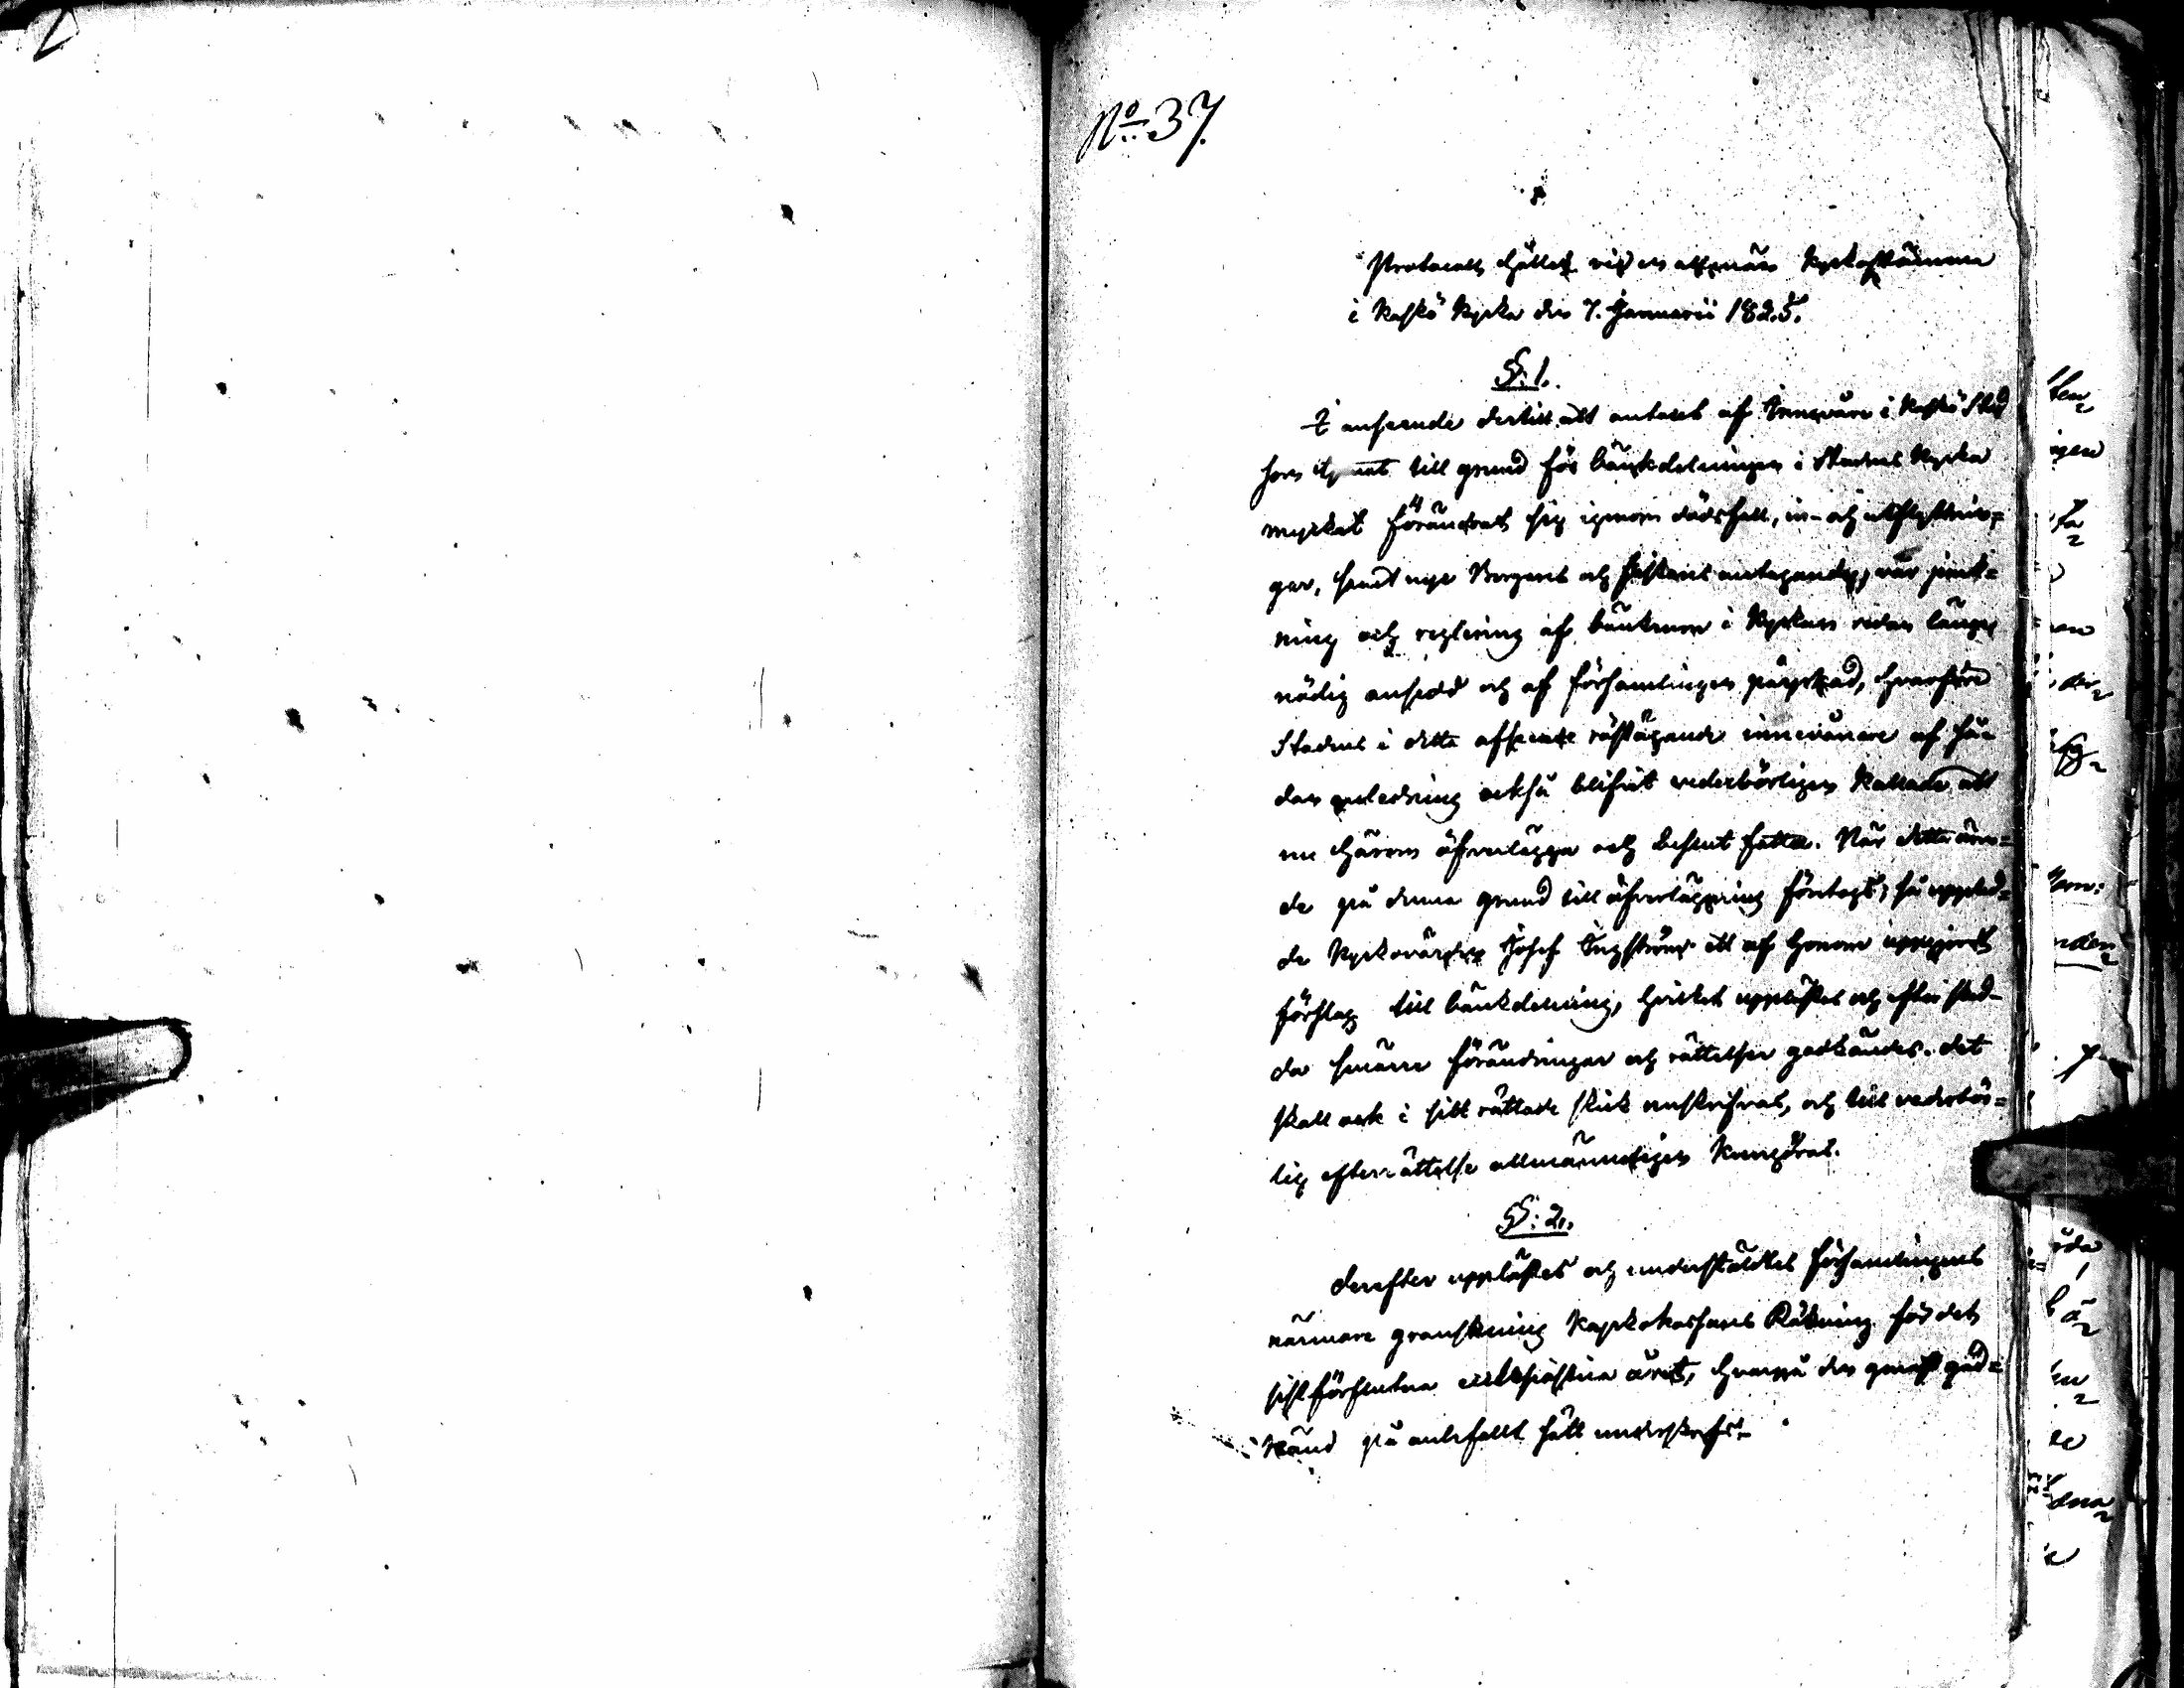 No 37.
Protocoll hållet vid en allmän Kyrkostämma
i Kaskö Kyrka den 7. Januarii 1825.
§. 1.
I anseende dertill att antalet af Innevånare i Kaskö Stad
som till grund för bänkdelningen i Stadens Kyrka
myckat förändrat sig igenom dödsfall, in- och utflyttnin-
gar, samt nye Borgares och antagande, var jemk-
ning och reglering af bänkarne i Kyrkan redan länge
nödig ansedd och af församlingen påyrkad, hvarföre
Stadens i detta afseende röstägande innevånare af så-
dan anledning också blifvit vederbörligen Kallade att
nu härom öfverlägga och beslut fatta. När detta ären-
de på denna grund till öfverläggning företogs, så upplad-
de Kyrkovärden Josef Engström ett af honom uppgjordt
förslag till bänkdelning, hvilket upplästes och efter skad-
da smärre förändringar och rättelser godkändes. det
skall ock i sitt rättade skick renskrifvas, och till vederbör-
lig efterrättelse allmänneligen kungöras.
§: 2.
Derefter upplästes och understäldtes församlingens
närmare granskning Kyrkokassans Räkning för det
sistförflutna ecclesiastica året, hvarpå den genast god-
känd på anbefallt sätt underskrefs.